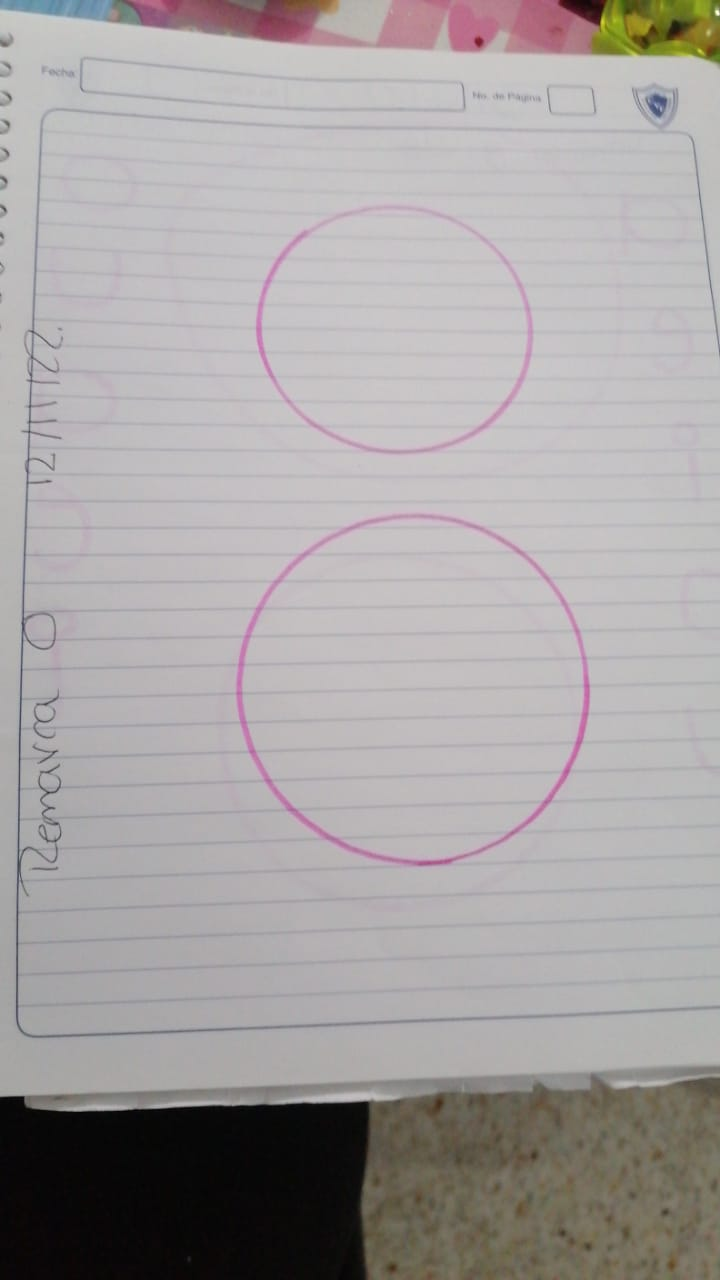 Fecha
No. de Página
Remarca O 12/11/22.